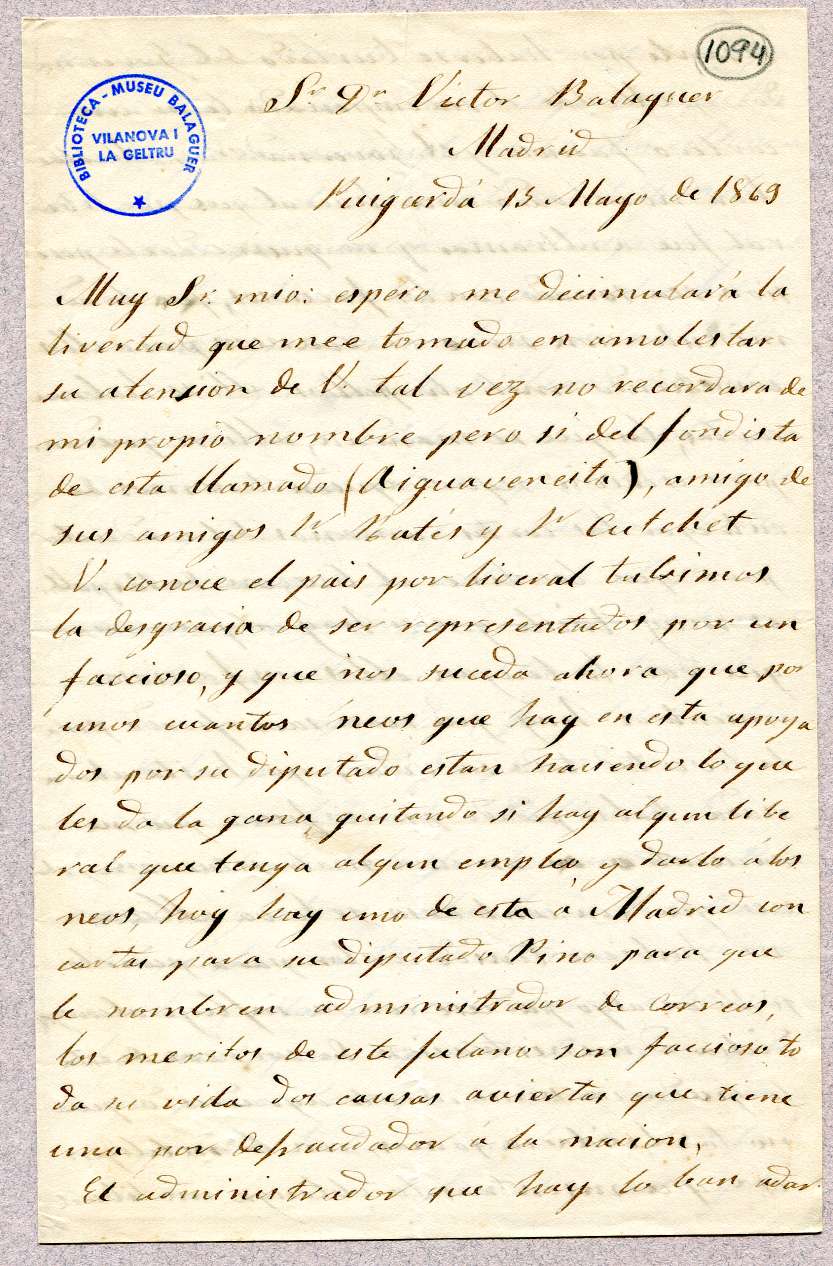 1094
BIBLIOTECA - MUSEU BALAGUER
VILANOVA I
LA GELTRU
Sr Dn Victor Balaguer
Madrid
Puigcerdá 15 Mayo de 1869
Muy Sr. mio: espero me dicimulará la
livertad que mee tomado en amolestar
su atension de V. tal vez no recordara de
mi propio nombre pero si del fondista
de esta llamado (Aiguaveneita), amigo de
sus amigos Sr y Sr Cutchet
V. conoce el pais por liveral tubimos
la desgracia de ser representados por un
faccioso, y que nos suceda ahora que por
unos cuantos neos que hay en esta apoya
dos por su diputado estan haciendo lo que
les da la gana, quitando si hay algun libe
ral que tenga algun empleo y darlo á los
neos, hoy hay uno de esta á Madrid con
cartas para su diputado Pino para que
le nombren administrador de Correos,
los meritos de este fulano son faccioso to
da su vida dos causas aviertas que tiene
una por defraudador á la nacion,
El administrador que hay lo ban adar